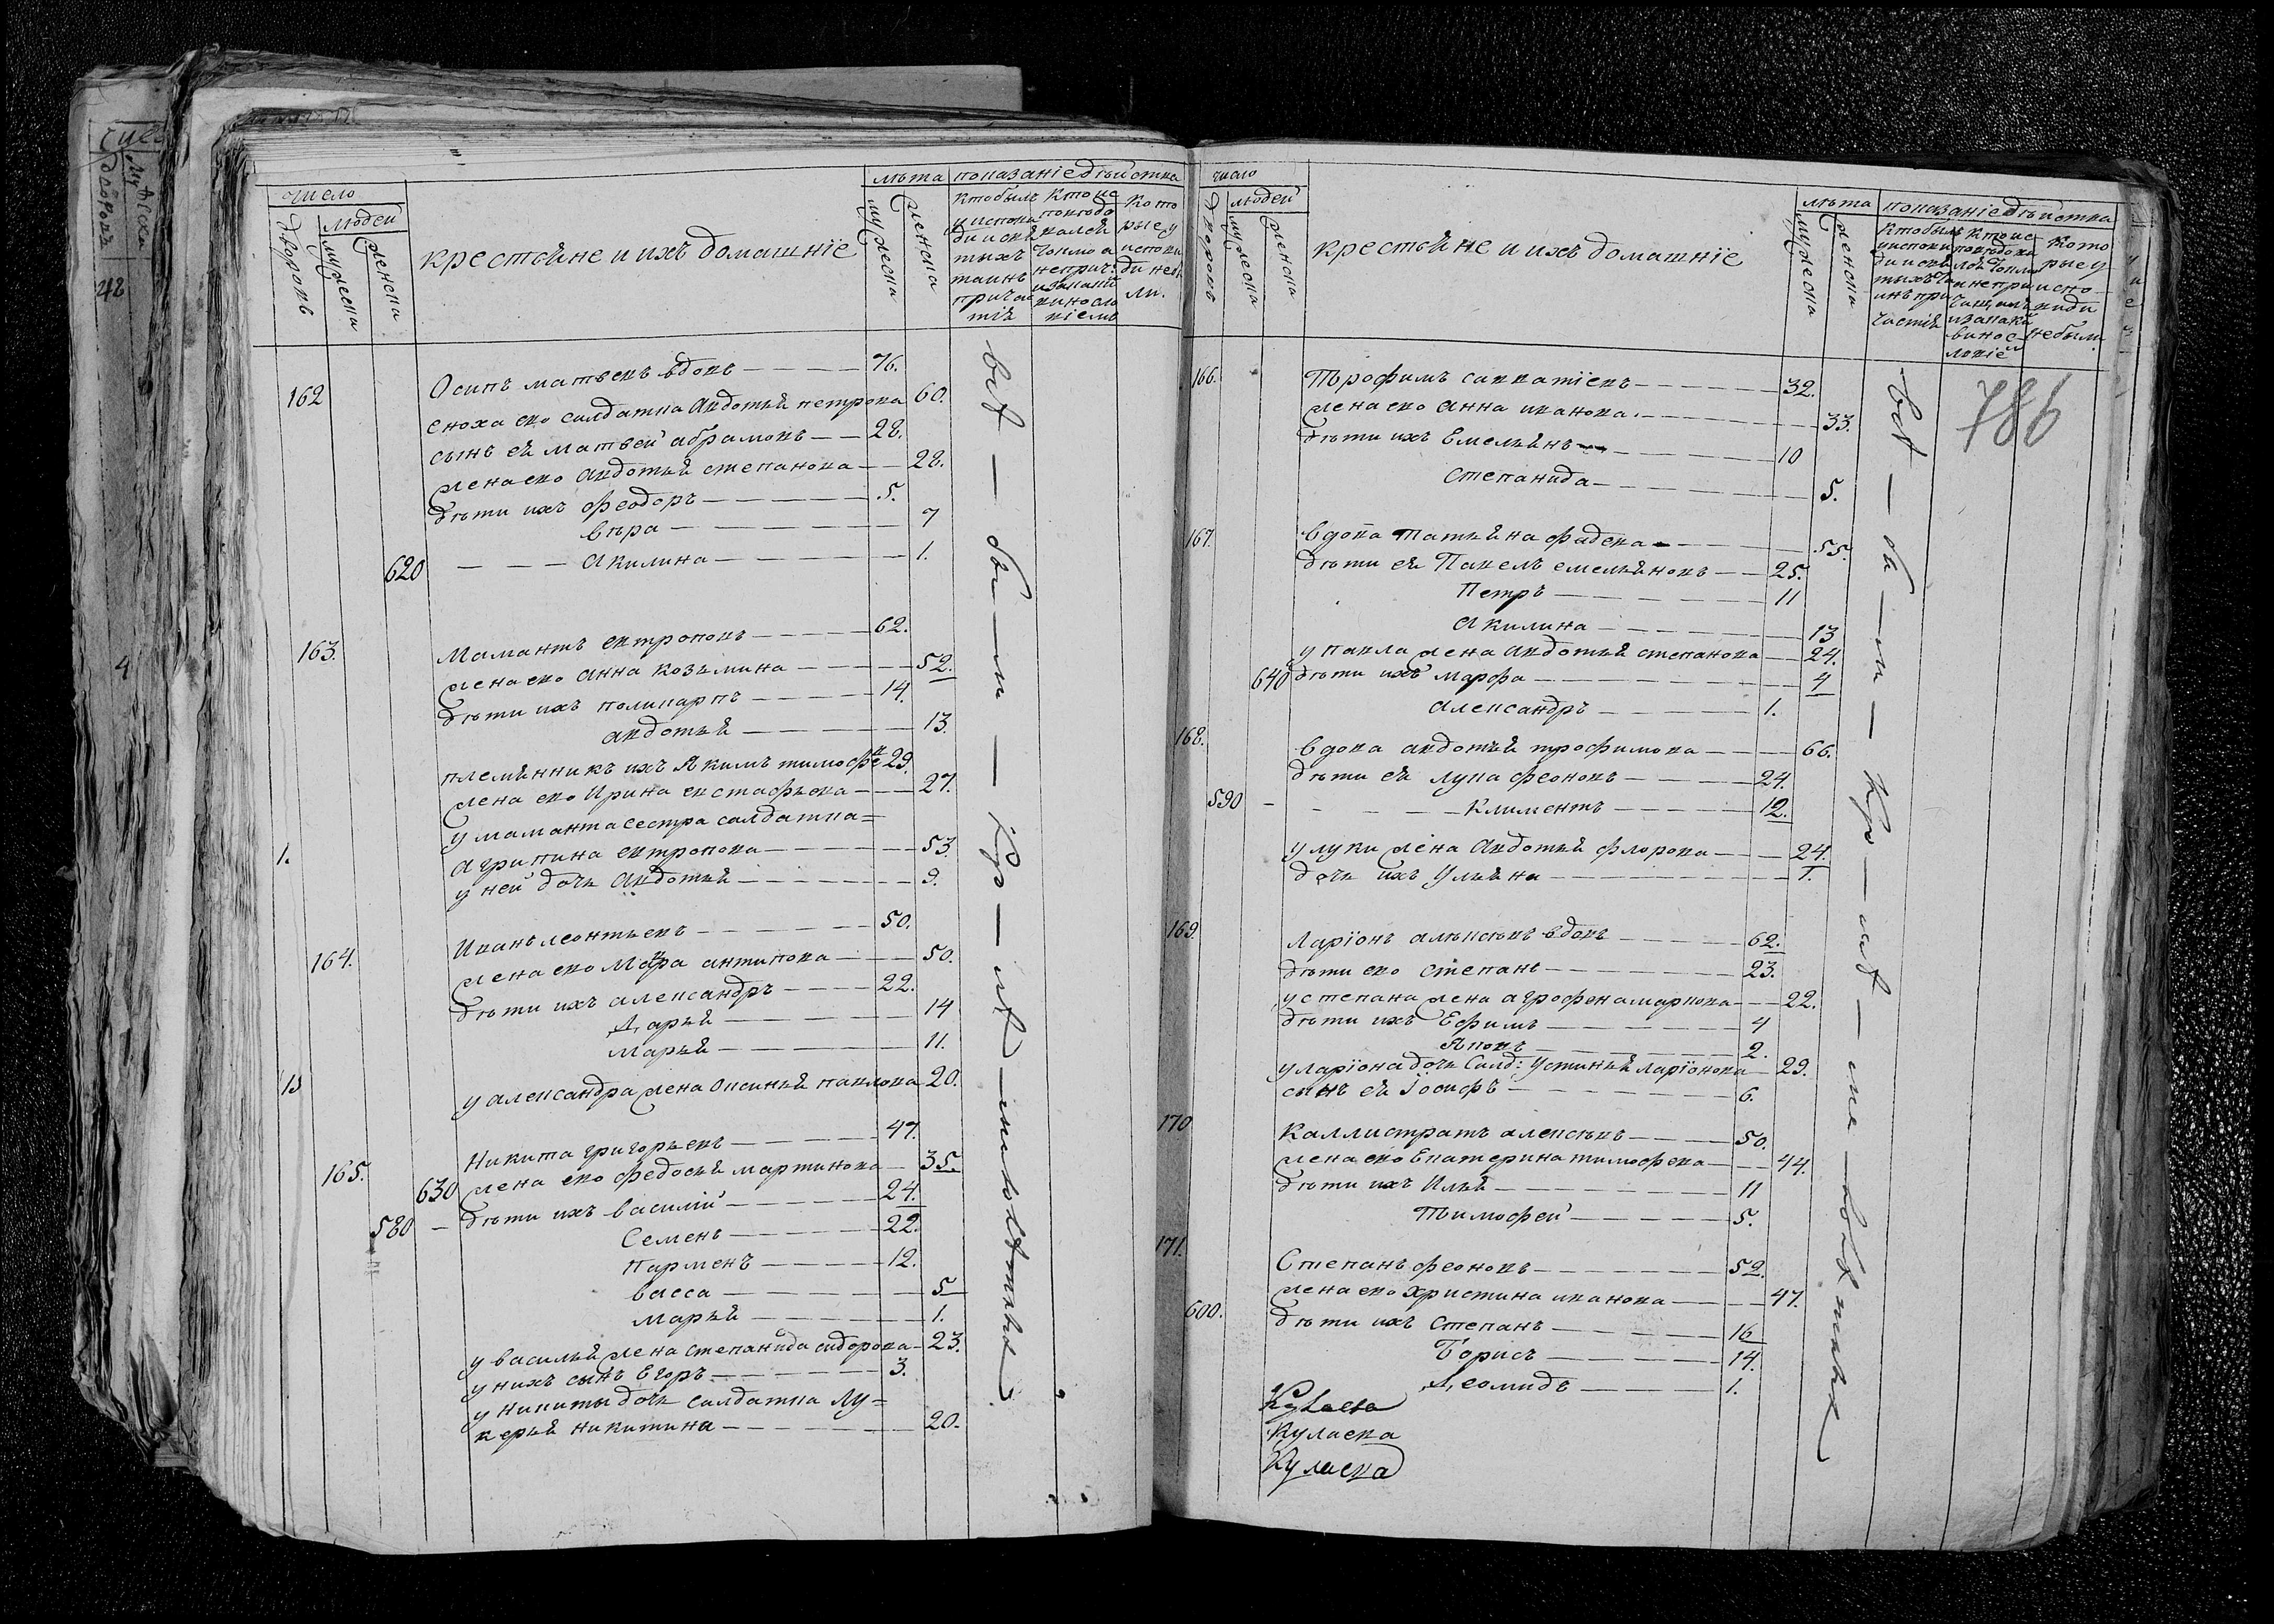 число
дворовъ
людей
мужеска
женска
крестьяне и ихъ домашнїе
лѣта
мужеска
женска
показанїе дѣйства
кто былъ
у исповѣ
ди и свя
тыхъ
таинъ
прича
стїя
кто ис
повѣдо
вался
а
не прич:
и за каки
ми
кото
рые у
исповѣ
ди не бы
ли.
162
Осипъ матвеевъ вдовъ 76.
сноха ево салдатка Авдотья петрова 60.
сынъ ея матвей абрамовъ 28.
жена ево авдотья степанова 28.
дѣти ихъ феодоръ 5.
вѣра 7
620
акилина 1.
163.
Мамантъ евтроповъ 62.
жена ево анна козьмина 52.
дѣти ихъ поликарпъ 14.
авдотья 13.
племянникъ ихъ Якимъ тимофѣв 29.
жена ево Ирина евстафьева 27.
у маманта сестра салдатка=
1.
агрипина евтропова 53.
у ней дочь Авдотья 9.
164.
Иванъ леонтьевъ 50.
жена ево Мавра антипова 50.
дѣти ихъ александръ 22.
Дарья 14
Марья 11.
у александра жена Оксинья павлова 20.
165.
Никита григорьевъ 47.
630
жена ево федосья мартинова 35.
580
дѣти ихъ василїй 24.
Семенъ 22.
парменъ 12.
васса 5
марья 1.
у василья жена степанида сидорова 23.
у нихъ сынъ Егоръ 3.
у никиты дочь салдатка Лу=
керья никитина 20.
всѣ — бы — ли —
число
дворовъ
людей
мужеска
женска
крестьяне и ихъ домашнїе
лѣта
мужеска
женска
показанїе дѣйства
кото
рые у
испо
вѣди
не были.
786
166.
Трофимъ савватїевъ 32.
жена ево анна иванова 33.
дѣти ихъ Емельянъ 10
степанида 5.
167.
вдова татьяна фадева 55.
дѣти ея Павелъ емельяновъ 25.
Петръ 11
акилина 13
у павла жена авдотья степанова 24.
640
дѣти ихъ марфа 4
александръ 1.
168.
вдова авдотья трофимова 66.
дѣти ея лука феоновъ 24.
590
Климентъ 12.
у луки жена Авдотья флорова 24.
дочь ихъ Ульяна 1.
169.
Ларїонъ алексѣевъ вдовъ 62.
дѣти ево степанъ 23.
у степана жена агрофена маркова 22.
дѣти ихъ Ефимъ 4
Яковъ 2.
у ларїона дочь Салд: Устинья ларїонова 29.
сынъ ея Іосифъ 6.
170
Каллистратъ алексѣевъ 50.
жена ево Екатерина тимофева 44.
дѣти ихъ Илья 11
Тимофей 5.
171.
Степанъ феоновъ 52.
жена ево христина иванова 47.
600.
дѣти ихъ Степанъ 16
Борисъ 14.
Деомидъ 1.
Кулаева
Кулаева
всѣ — бы — ли —